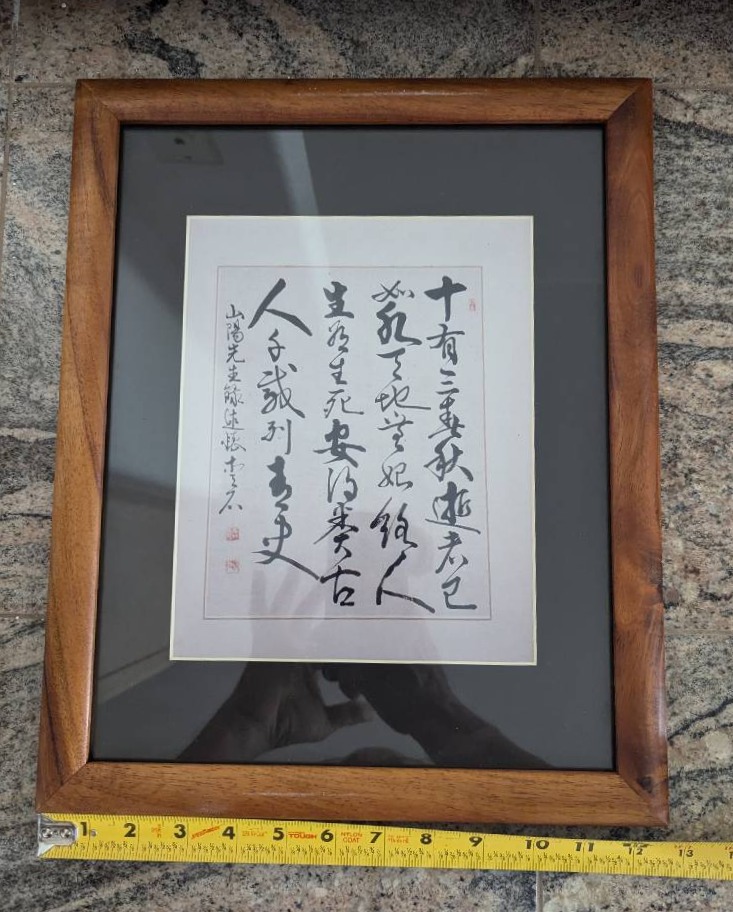 十有三春秋逝者已
如水天地無始終人
生有生死安得類古
人千載列青史
山陽先生録述懐
1 2 3 4 5 TOUGH 6 NYLON COAT 7 8 9 10 11 12 13